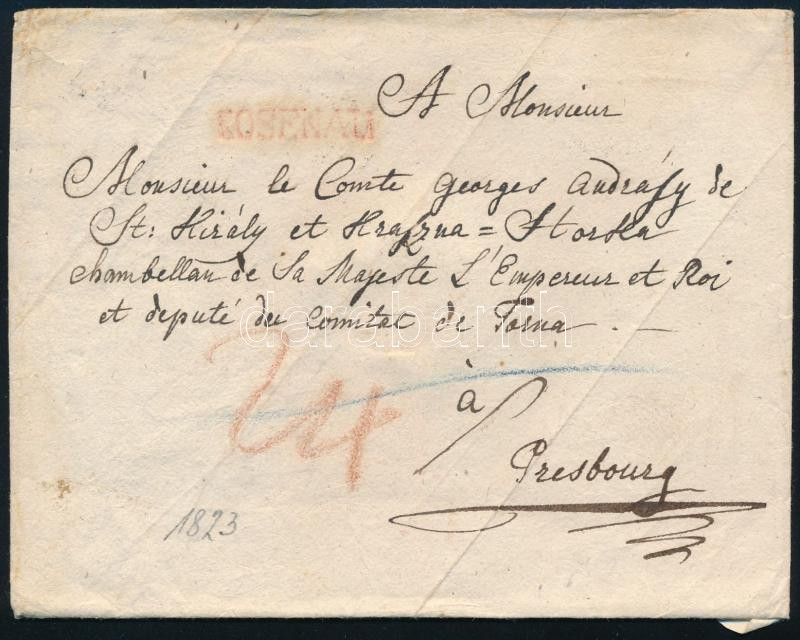 A Monsieur
ROSENAU
Monsieur le Comte Georges Andrásy de
St: Király et Kraszna = Horska
chambellan de Sa Majeste L'Empereur et Roi
et deputé du Comitat de Torna
darabanth
24
à
Presbourg
1823